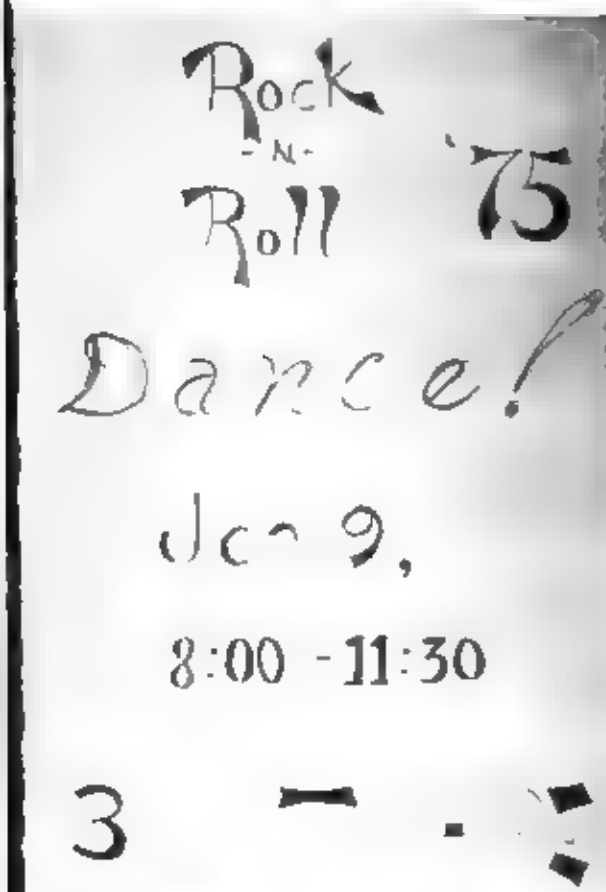 Rock
-N-
Roll '75
Dance!
Jan 9,
8:00 - 11:30
3